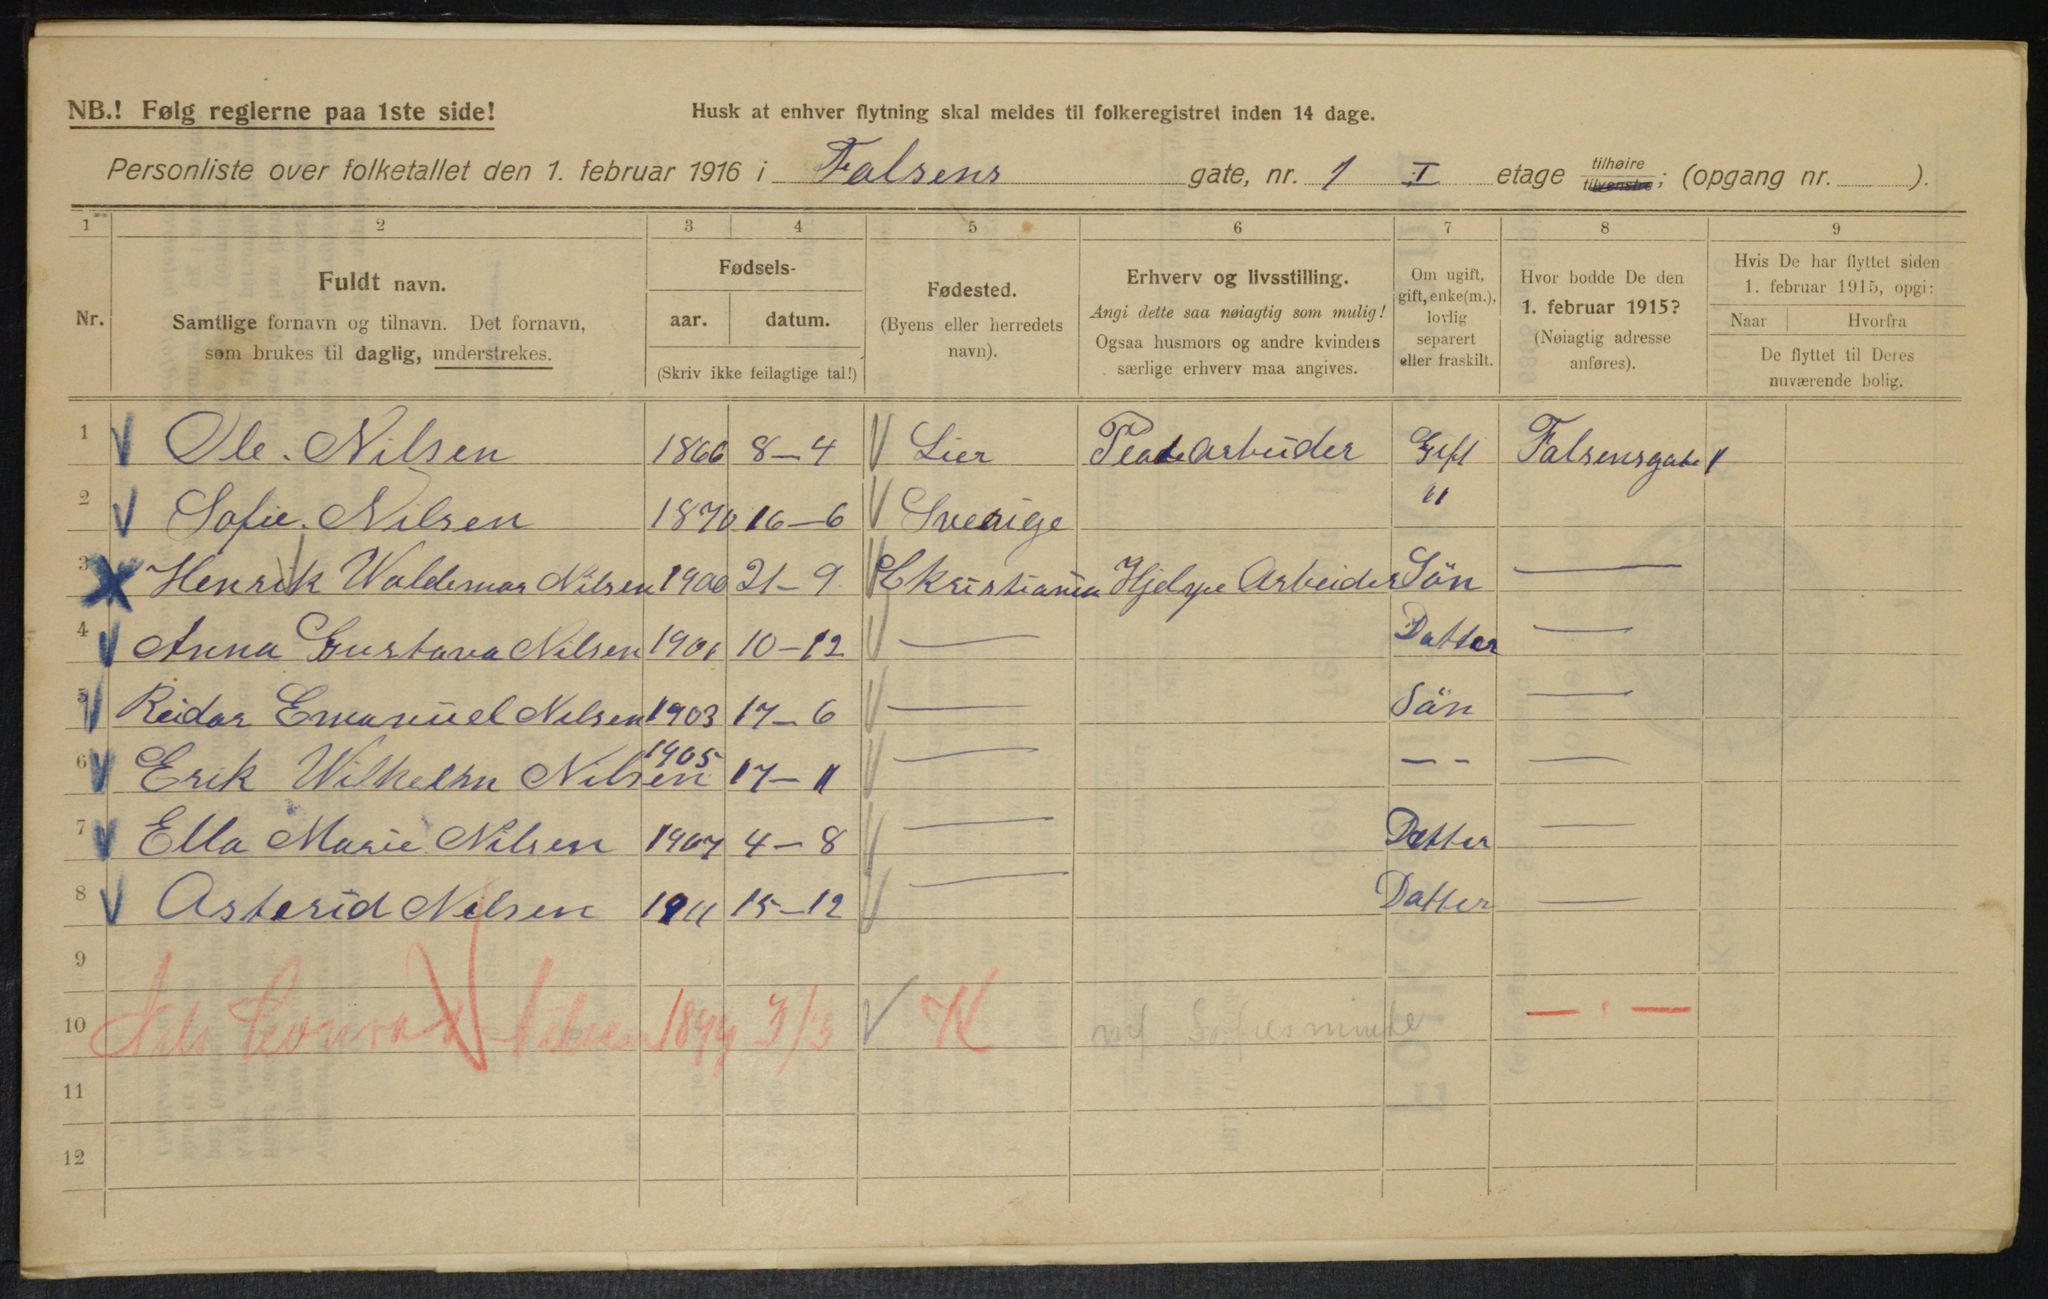 NB.! Følg reglerne paa 1ste side!
Husk at enhver flytning skal meldes til folkeregistret inden 14 dage.
Personliste over folketallet den 1. februar 1916 i Falsens gate, nr. 1 I etage tilhøire tilvenstre; (opgang nr. ).
1 2 3 4 5 6 7 8 9
Nr.
Fuldt navn.
Samtlige fornavn og tilnavn. Det fornavn,
som brukes til daglig, understrekes.
Fødsels-
aar. datum.
(Skriv ikke feilagtige tal!)
Fødested.
(Byens eller herredets
navn).
Erhverv og livsstilling.
Angi dette saa nøiagtig som mulig!
Ogsaa husmors og andre kvinders
særlige erhverv maa angives.
Om ugift,
gift, enke(m.),
lovlig
separert
eller fraskilt.
Hvor bodde De den
1. februar 1915?
(Nøiagtig adresse
anføres).
Hvis De har flyttet siden
1. februar 1915, opgi:
Naar Hvorfra
De flyttet til Deres
nuværende bolig.
1 Ole. Nilsen 1866 8-4 Lier arbeider Gift Falsensgate 1
2 Sofie. Nilsen 1870 16-6 Sverige "
3 Henrik Waldemar Nilsen 1900 21-9 Kristiania Hjelpe Arbeider Sön —
4 Anna Gustava Nilsen 1901 10-12 — Datter —
5 Reidar Emanuel Nilsen 1903 17-6 — Sön —
6 Erik Wilhelm Nilsen 1905 17-11 — -- —
7 Ella Marie Nilsen 1907 4-8 — Datter —
8 Asterid Nilsen 1911 15-12 — Datter —
9
10 Nils Conrad Nilsen 1899 3/3 K — " —
11
12